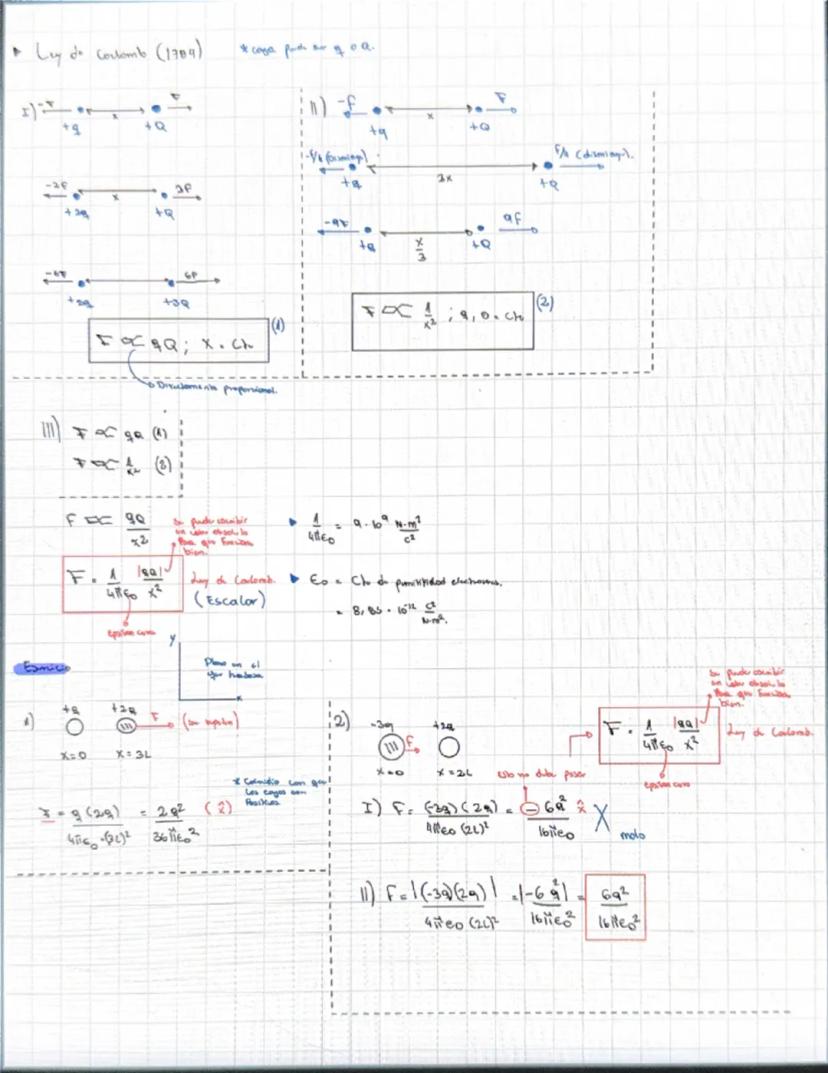 ▸ Ley de Coulomb (1784) * carga puede ser q o Q.
I) -F x F
+q +Q
-2F x 2F
+2q +Q
-6F 6F
+2q +3Q
F ∝ qQ ; x = cte (1)
Directamente proporcional.
II) -F x F
+q +Q
-F/4 (disminuye) 2x F/4 (disminuye).
+q +Q
-9F x/3 9F
+q +Q
F ∝ 1/x² ; q, Q = cte (2)
III) F ∝ qQ (1)
F ∝ 1/x² (2)
F ∝ qQ/x²
Se puede escribir
en valor absoluto
Para que funcione
bien.
F = 1/4πε₀ |qQ|/x² Ley de Coulomb.
(Escalar)
Epsilon cero
▸ 1/4πε₀ = 9·10⁹ N·m²/C²
▸ ε₀ = Cte de permitividad electrica.
= 8,85 · 10⁻¹² C²/N·m².
y
Plano en el
que trabaja
x
1) +q +2q F
x=0 x=3L
* Coincidio con que
las cargas son
Positivas
F = q(2q)/4πε₀·(3L)² = 2q²/36πε₀² (x̂)
2) -3q F +2q
x=0 x=2L
Esto no debe pasar
F = 1/4πε₀ |qQ|/x² Ley de Coulomb.
Se puede escribir
en valor absoluto
Para que funcione
bien.
Epsilon cero
I) F = (-3q)(2q)/4πε₀(2L)² = -6q²/16πε₀ x̂ X malo
II) F = |(-3q)(2q)|/4πε₀(2L)² = |-6q²|/16πε₀² = 6q²/16πε₀²